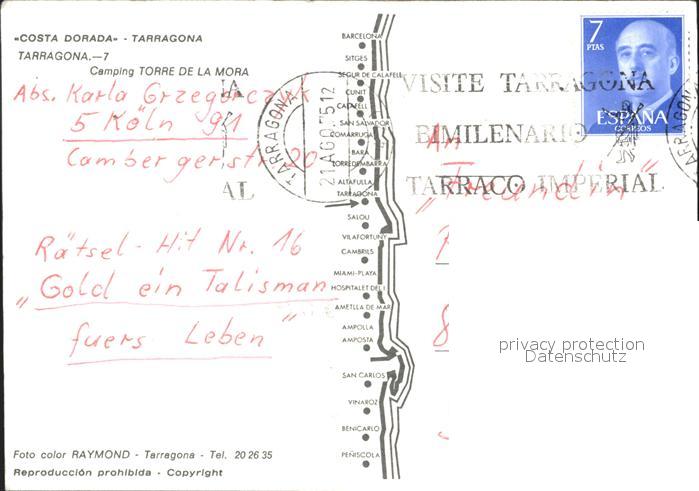 «COSTA DORADA» - TARRAGONA
TARRAGONA.—7
Camping TORRE DE LA MORA
Abs. Karla Grzegorczyk
5 Köln 91
Cambergerstr. 20
Rätsel-Hit Nr. 16
„Gold ein Talisman
fuers Leben"
Foto color RAYMOND - Tarragona - Tel. 20 26 35
Reproducción prohibida - Copyright
BARCELONA
SITGES
SEGUR DE CALAFELL
CUNIT
CALAFELL
SAN SALVADOR
COMARRUGA
BARA
TORREDEMBARRA
ALTAFULLA
TARRAGONA
SALOU
VILAFORTUNY
CAMBRILS
MIAMI-PLAYA
HOSPITALET DEL I.
AMETLLA DE MAR
AMPOLLA
AMPOSTA
SAN CARLOS
VINAROZ
BENICARLO
PEÑISCOLA
TARRAGONA
21 AGO 75 12
AL
VISITE TARRAGONA
BIMILENARIO
TARRACO IMPERIAL
7
PTAS
ESPAÑA
CORREOS
TARRAGONA
An
„Freundin"
7
8
privacy protection
Datenschutz